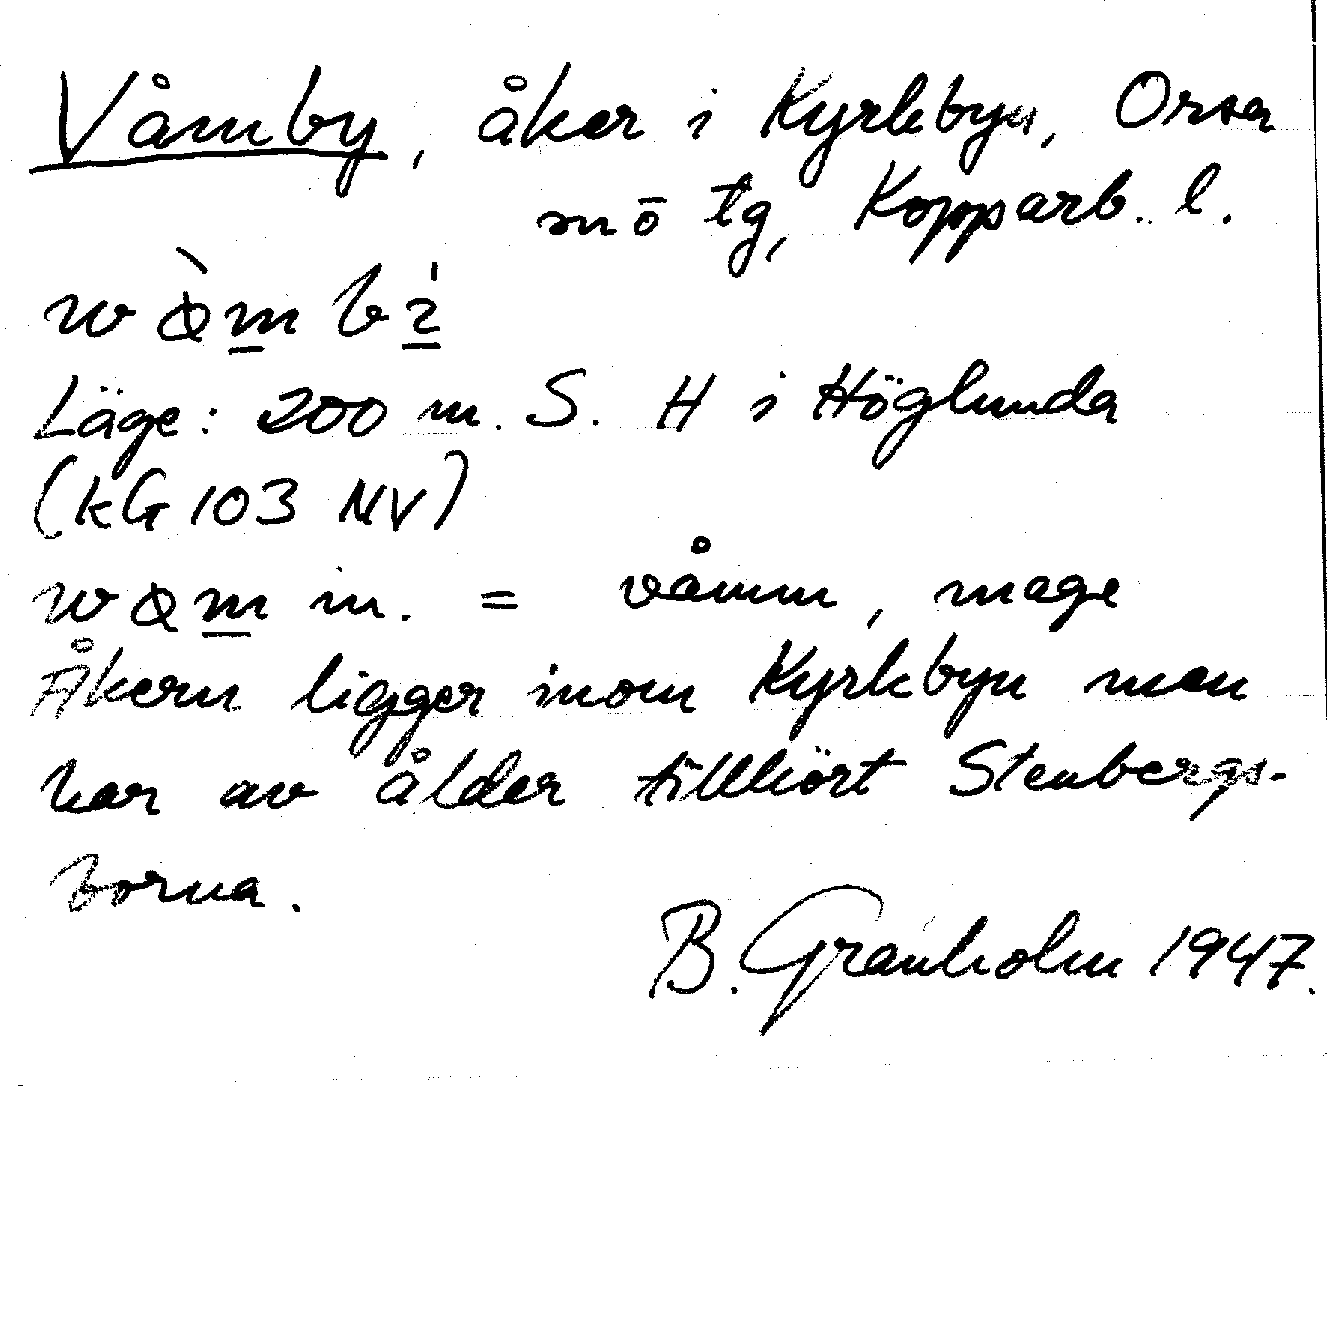 Våmby, åker i Kyrkbyn, Orsa
mō tg, Kopparb. l.
Läge: 200 m. S. H i Höglunda
(kG 103 NV)
m. = våmm, mage
Åkern ligger inom Kyrkbyn men
har av ålder tillhört Stenbergs-
borna.
B. Granholm 1947.